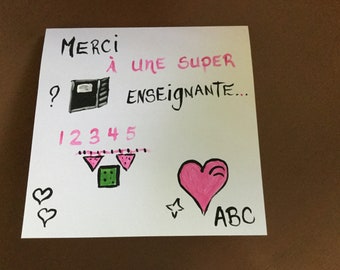 MERCI
à une super
? enseignante...
1 2 3 4 5
ABC